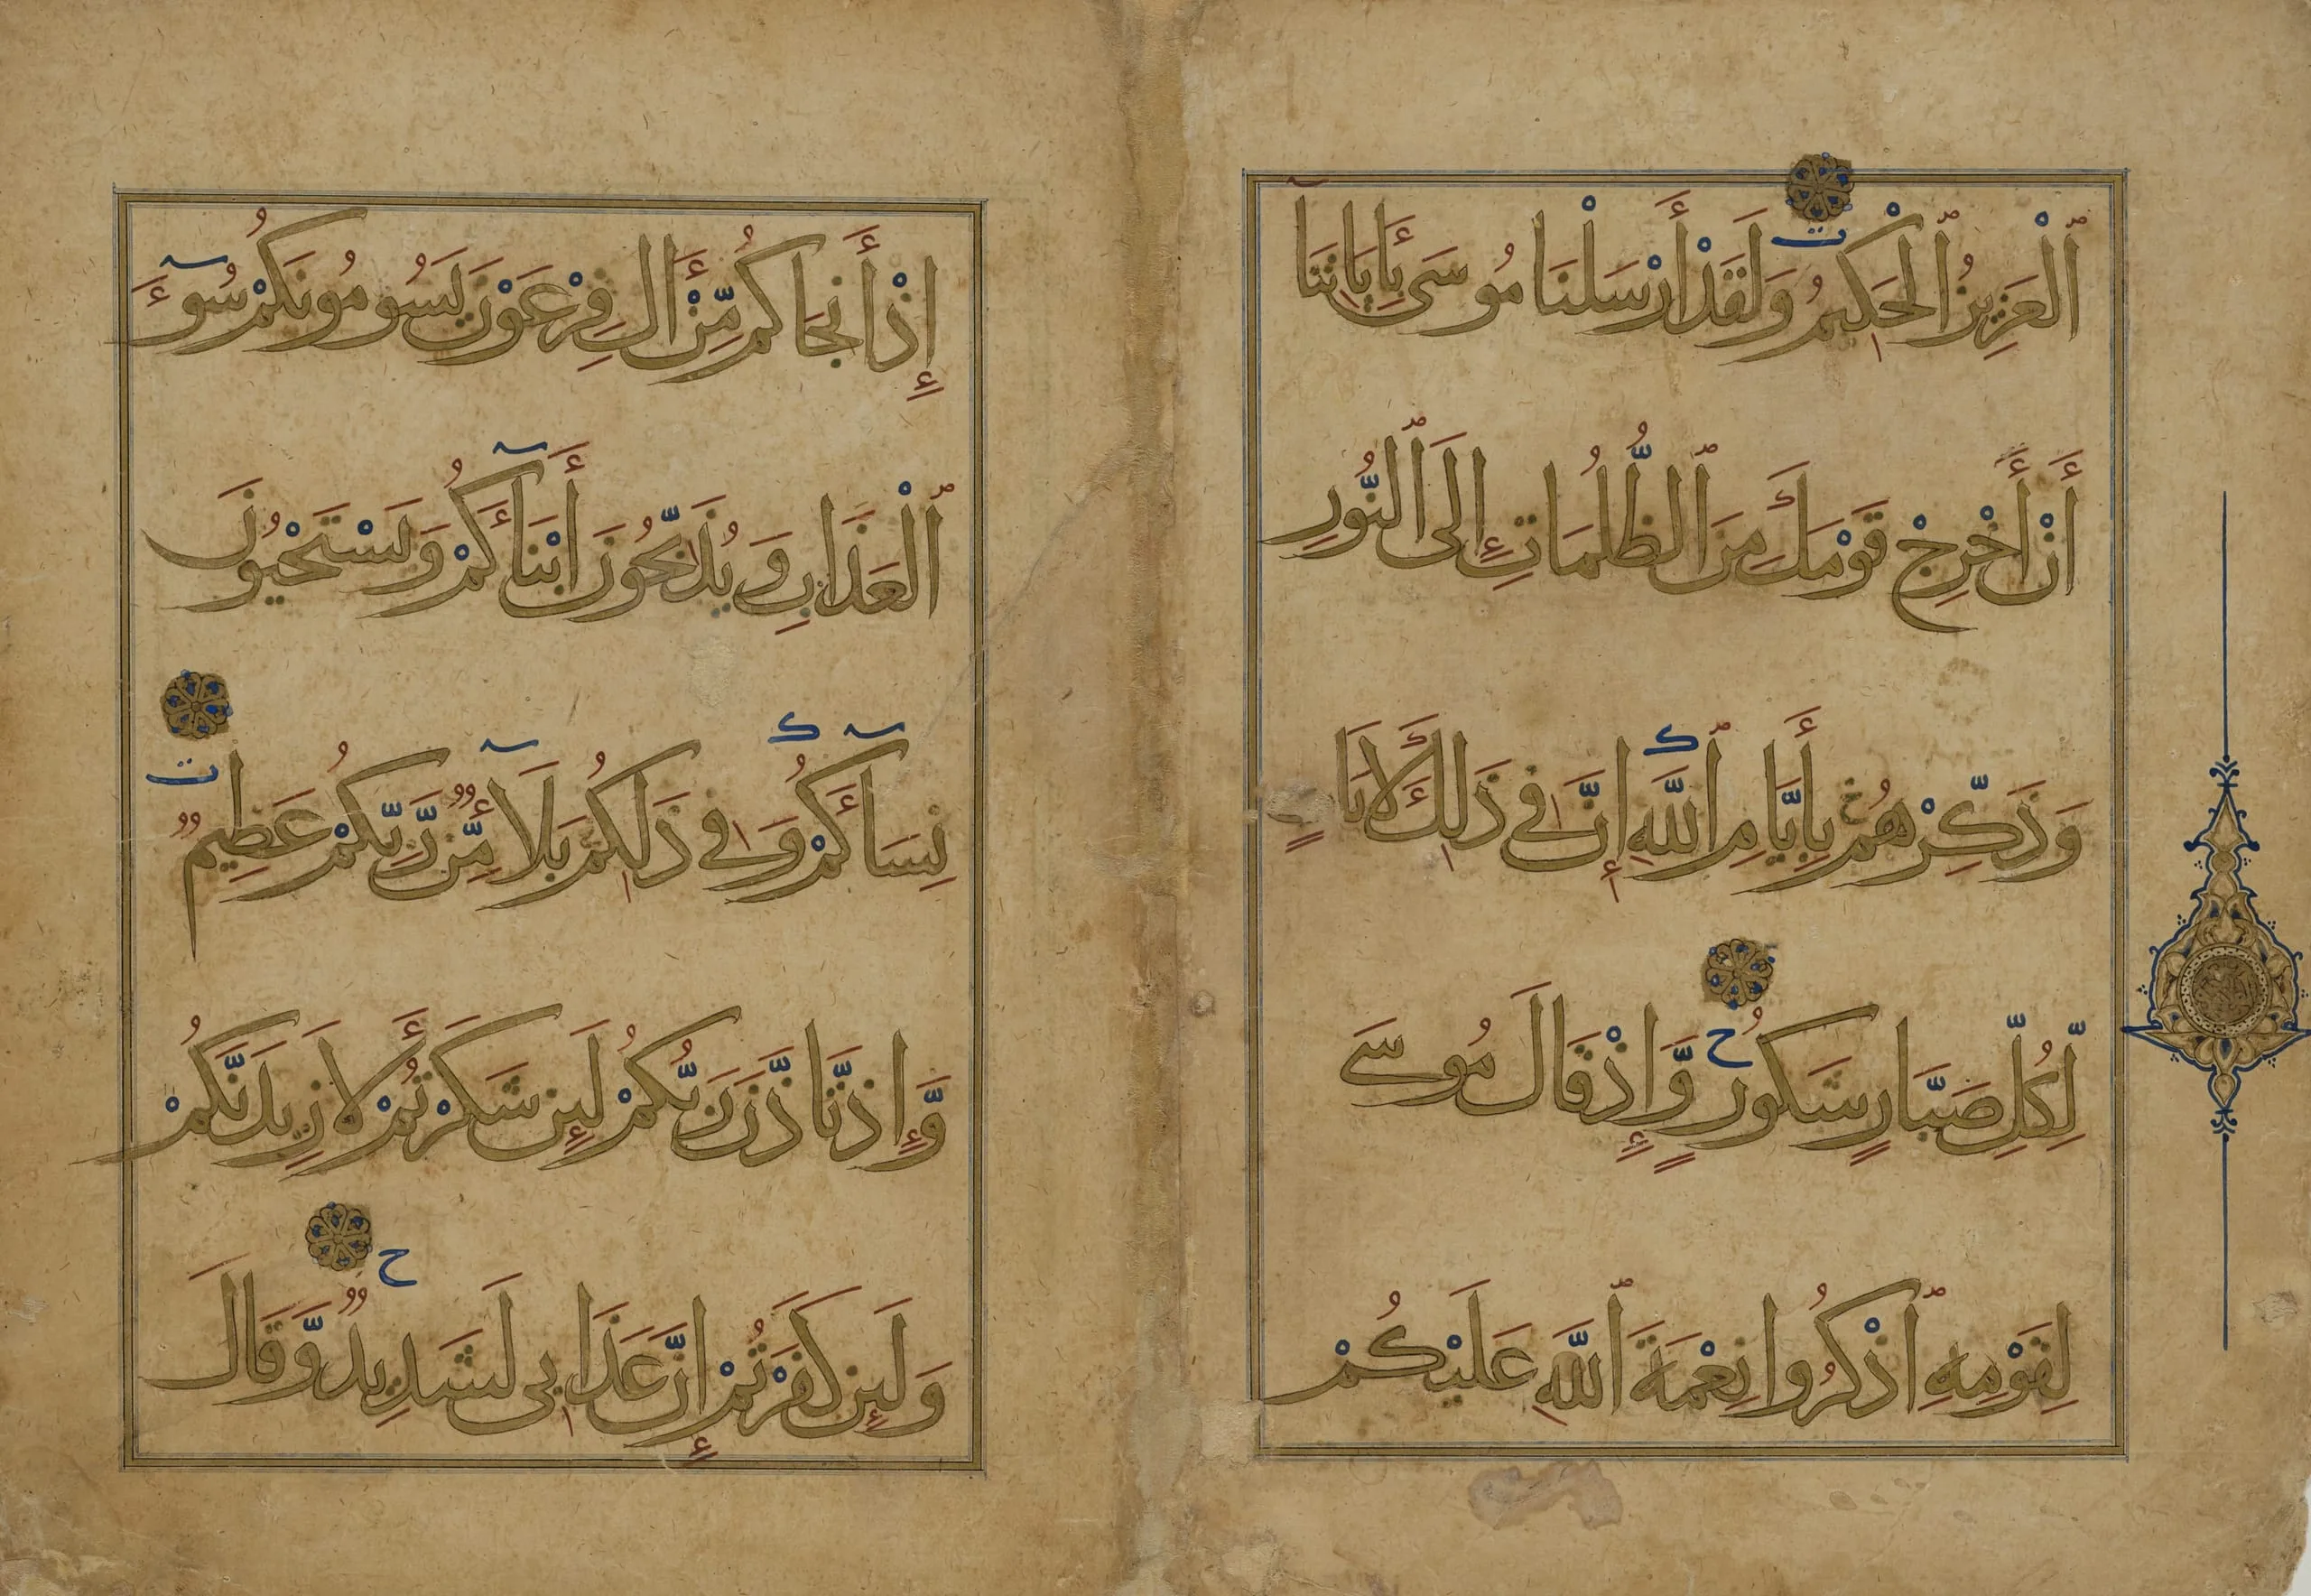 ٱلْعَزِيزُ ٱلْحَكِيمُ وَلَقَدْ أَرْسَلْنَا مُوسَى بِأَيَاتِنَا
أَنْ أَخْرِجْ قَوْمَكَ مِنَ ٱلظُّلُمَاتِ إِلَى ٱلنُّورِ
وَذَكِّرْهُم بِأَيَّامِ ٱللَّهِ إِنَّ فِي ذَلِكَ لَأَيَاتٍ
لِّكُلِّ صَبَّارٍ شَكُورٍ وَّإِذْ قَالَ مُوسَى
لِقَوْمِهِ ٱذْكُرُوا نِعْمَةَ ٱللَّهِ عَلَيْكُمْ
إِذْ أَنْجَاكُم مِّنْ أَالِ فِرْعَوْنَ يَسُومُونَكُمْ سُوٓءَ
ٱلْعَذَابِ وَيُذَبِّحُونَ أَبْنَآءَكُمْ وَيَسْتَحْيُونَ
نِسَآءَكُمْ وَفِي ذَلِكُم بَلَآءٌ مِّن رَّبِّكُمْ عَظِيمٌ
وَّإِذْ تَأَذَّنَ رَبُّكُمْ لَئِن شَكَرْتُمْ لَأَزِيدَنَّكُمْ
وَلَئِن كَفَرْتُمْ إِنَّ عَذَابِي لَشَدِيدٌ وَّقَالَ